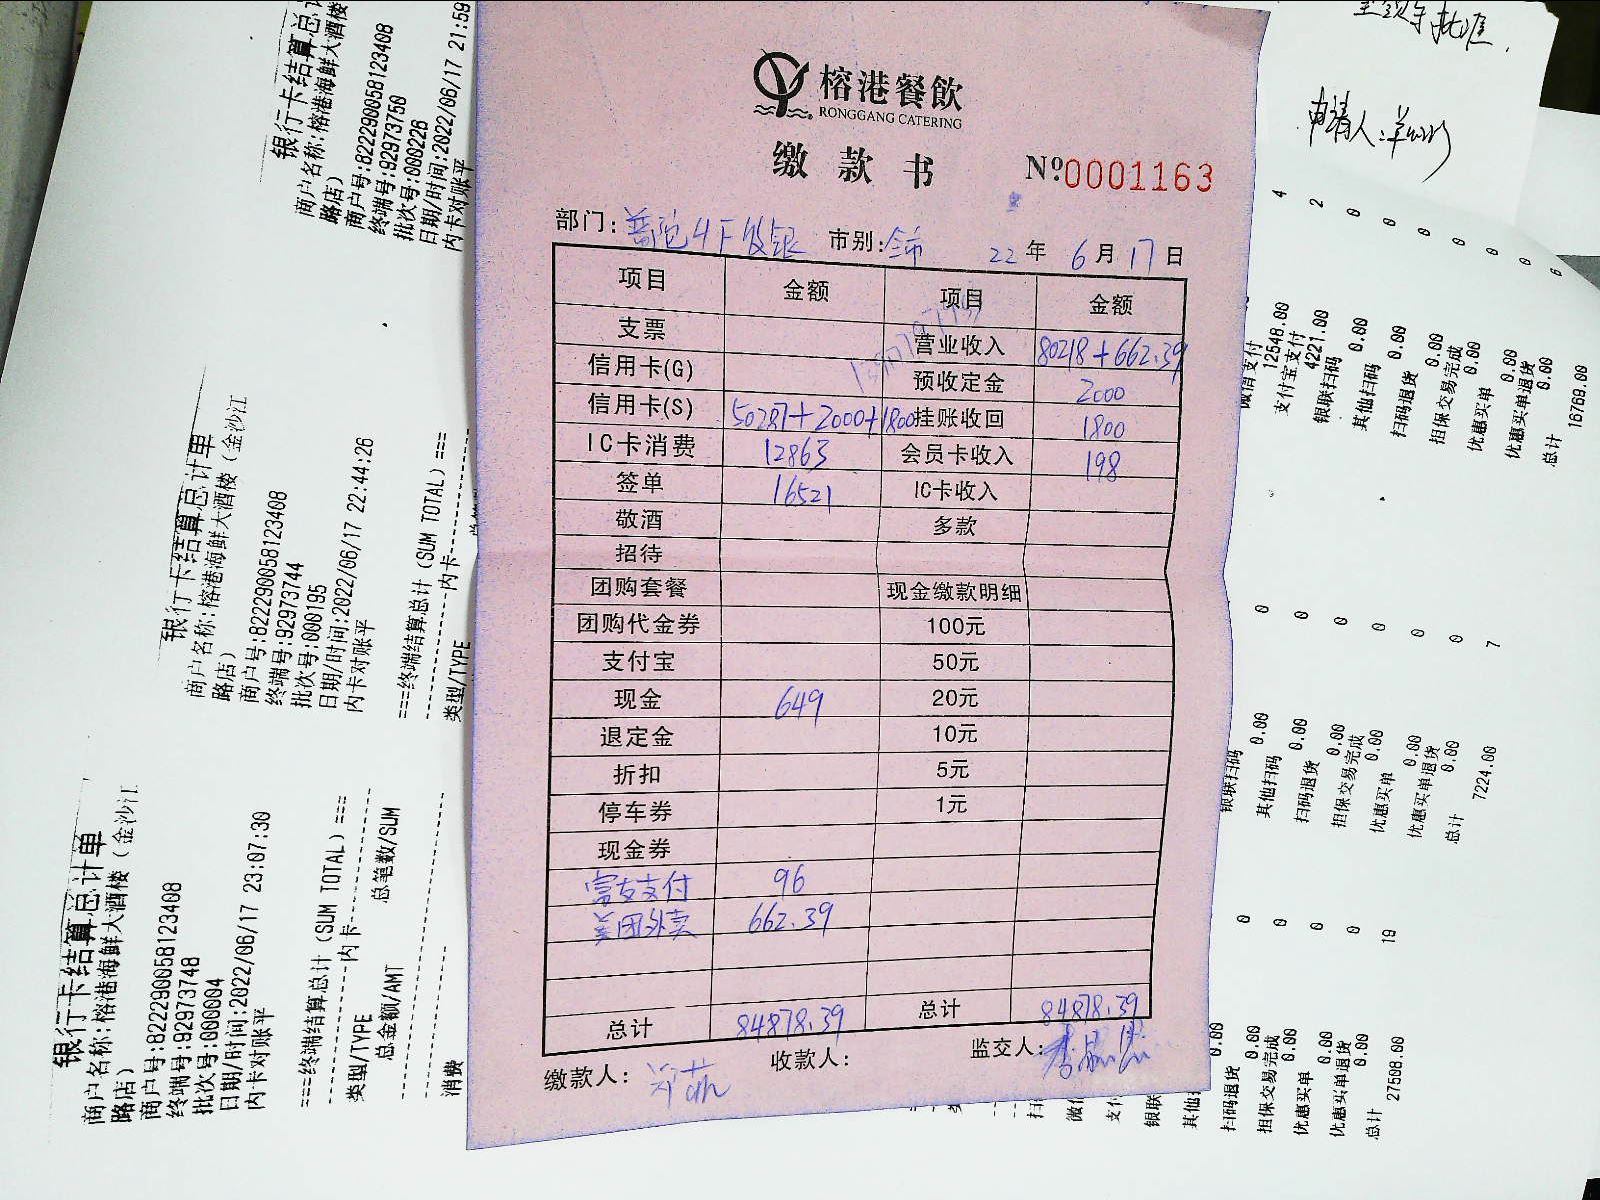 榕港餐飲
RONGGANG CATERING
缴款书 Nº0001163
部门: 市别:全市 22年6月17日
项目 金额 项目 金额
支票 营业收入 80218+662.39
信用卡(G) 预收定金 2000
信用卡(S) 50287+2000+1800 挂账收回 1800
IC卡消费 12863 会员卡收入 198
签单 16521 IC卡收入
敬酒 多款
招待
团购套餐 现金缴款明细
团购代金券 100元
支付宝 50元
现金 649 20元
退定金 10元
折扣 5元
停车券 1元
现金券
富友支付 96
美团外卖 662.39
总计 84878.39 总计 84878.39
缴款人: 收款人: 监交人:
银行卡结算总计单
商户名称:榕港海鲜大酒楼
路店)
商户号:822290058123408
终端号:92973750
批次号:000226
日期/时间:2022/06/17 21:59
内卡对账平
银行卡结算总计单
商户名称:榕港海鲜大酒楼（金沙江
路店)
商户号:822290058123408
终端号:92973744
批次号:000195
日期/时间:2022/06/17 22:44:26
内卡对账平
===终端结算总计（SUM TOTAL）===
内卡
类型/TYPE
银行卡结算总计单
商户名称:榕港海鲜大酒楼（金沙江
路店)
商户号:822290058123408
终端号:92973748
批次号:000004
日期/时间:2022/06/17 23:07:30
内卡对账平
===终端结算总计（SUM TOTAL）===
内卡
类型/TYPE 总笔数/SUM
总金额/AMT
消费
批准
申请人:
4
12548.00
支付宝支付 2
4221.00
银联扫码 0
0.00
其他扫码 0
0.00
扫码退货 0
0.00
担保交易完成 0
0.00
优惠买单 0
0.00
优惠买单退货 0
0.00
总计 6
16769.00
银联扫码 0
0.00
其他扫码 0
0.00
扫码退货 0
0.00
担保交易完成 0
0.00
优惠买单 0
0.00
优惠买单退货 0
0.00
总计 7
7224.00
0.00
扫码退货 0
0.00
担保交易完成 0
0.00
优惠买单 0
0.00
优惠买单退货 0
0.00
总计 19
27508.00